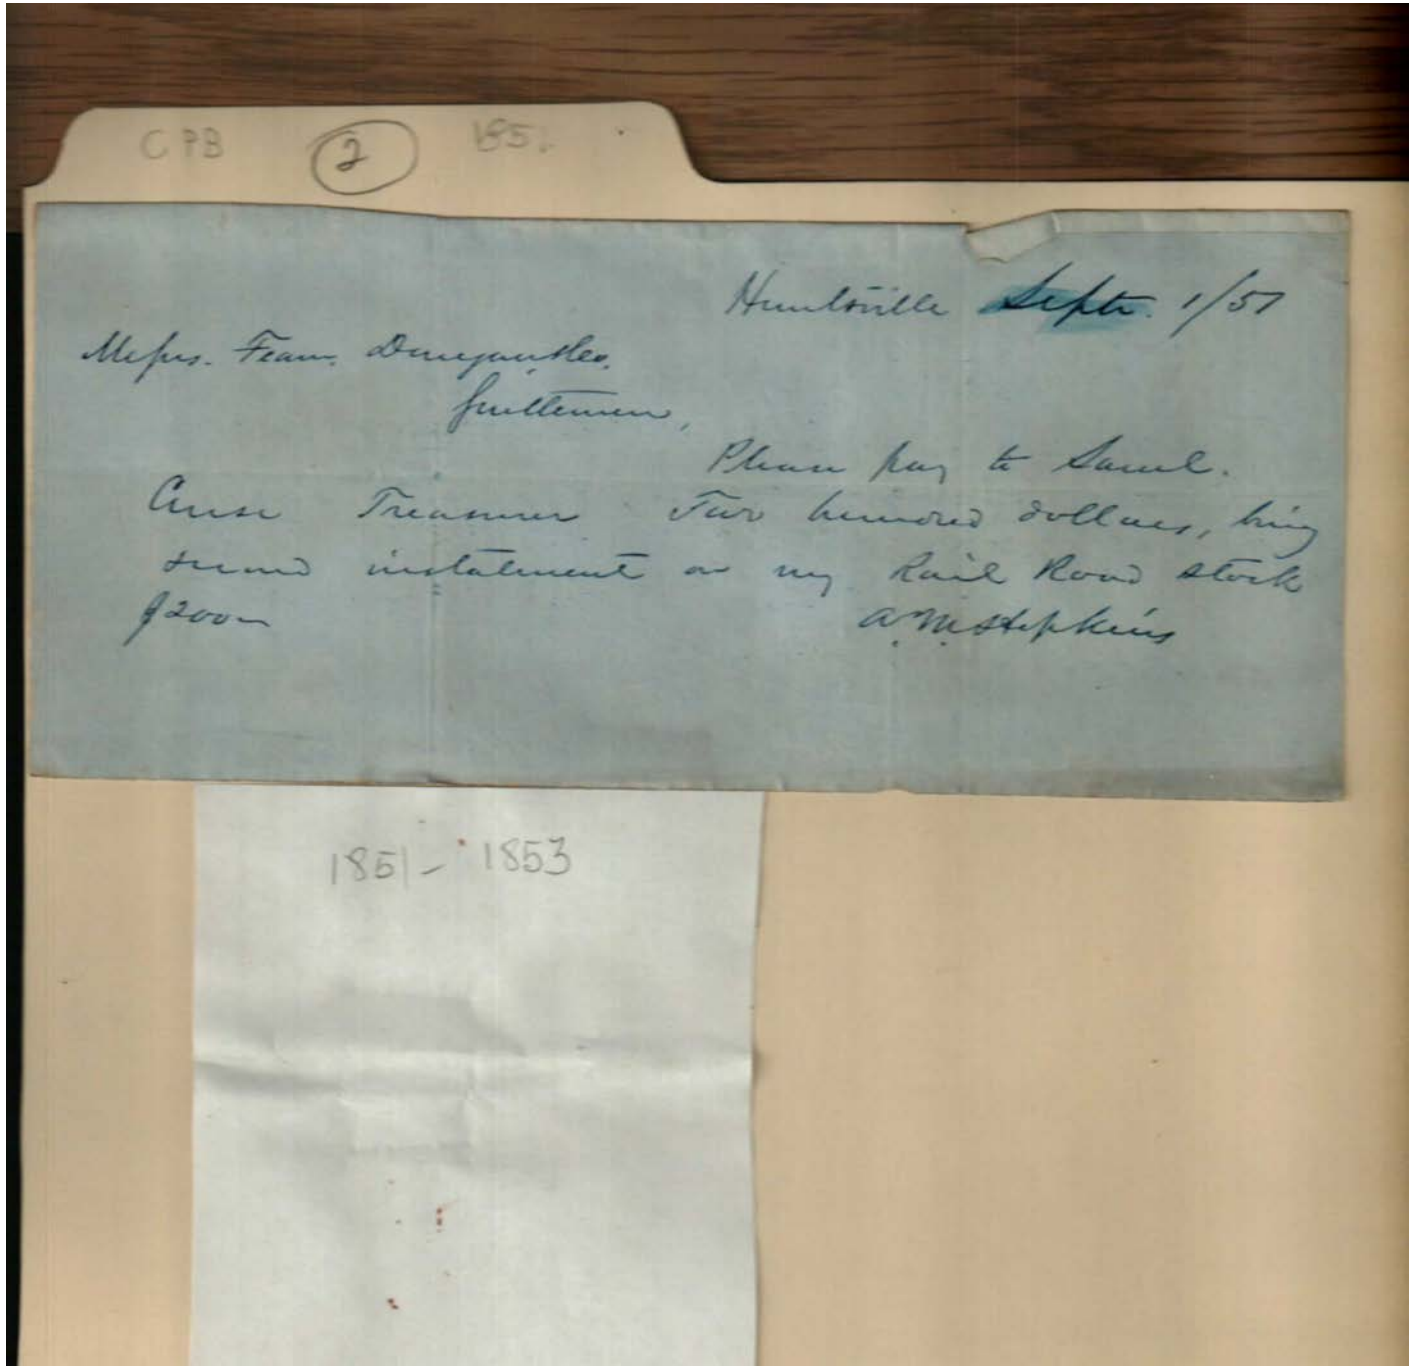 CPB 2 185
Huntsville Septr. 1/51
Messrs. Fearn, Donegan & Co.
Gentlemen,
Please pay to Saml.
Cruse Treasurer Two hundred dollars, being
second instalment on my Rail Road stock
$200
1851 - 1853